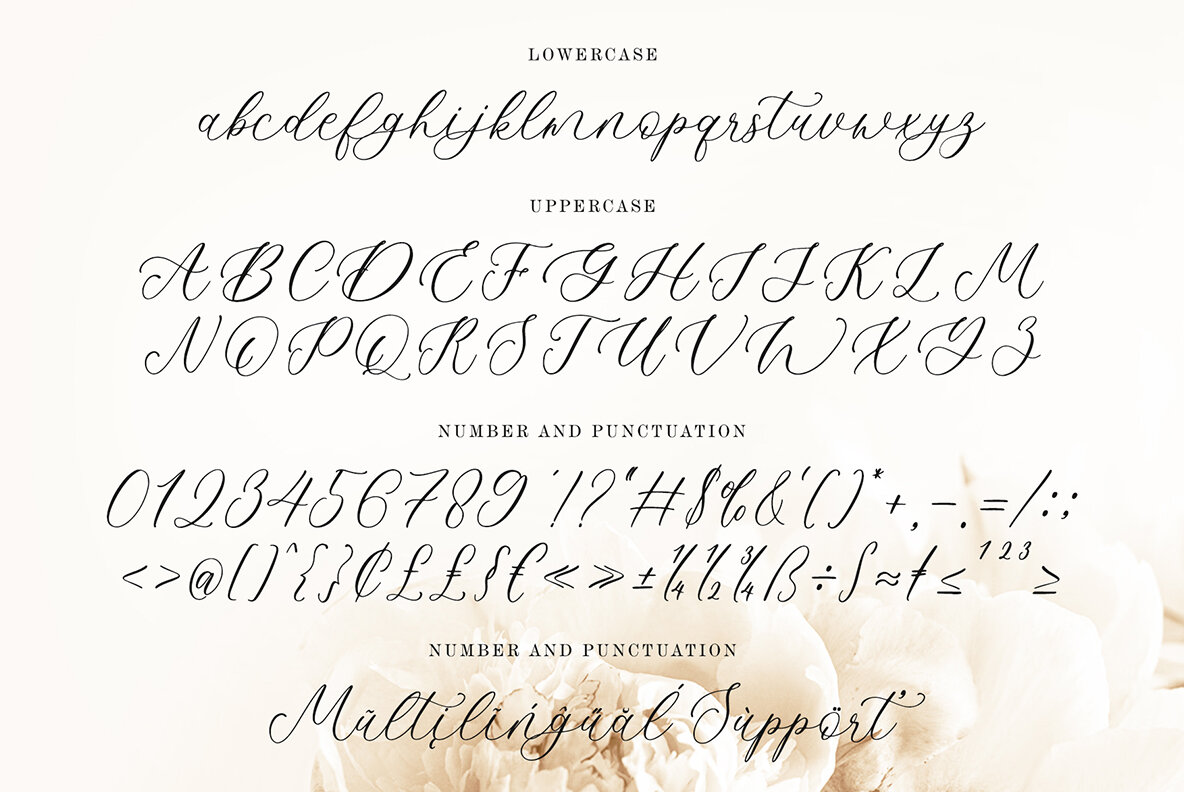 LOWERCASE
abcdefghijklmnopqrstuvwxyz
UPPERCASE
ABCDEFGHIJKLM
NOPQRSTUVWXYZ
NUMBER AND PUNCTUATION
0123456789'!?"#$‰&‘()*+,-.=/:;
<>@[]^{}₵£₤§€≪≫±¼½¾ß÷∫≈≠≤¹²³≥
NUMBER AND PUNCTUATION
Mũltįlĩńĝűăĺ Sùppört’